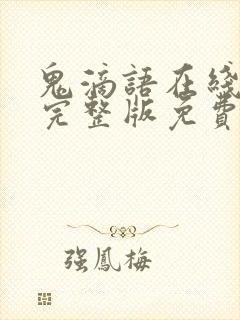 鬼滴語在綫
完整版免費
强鳳梅